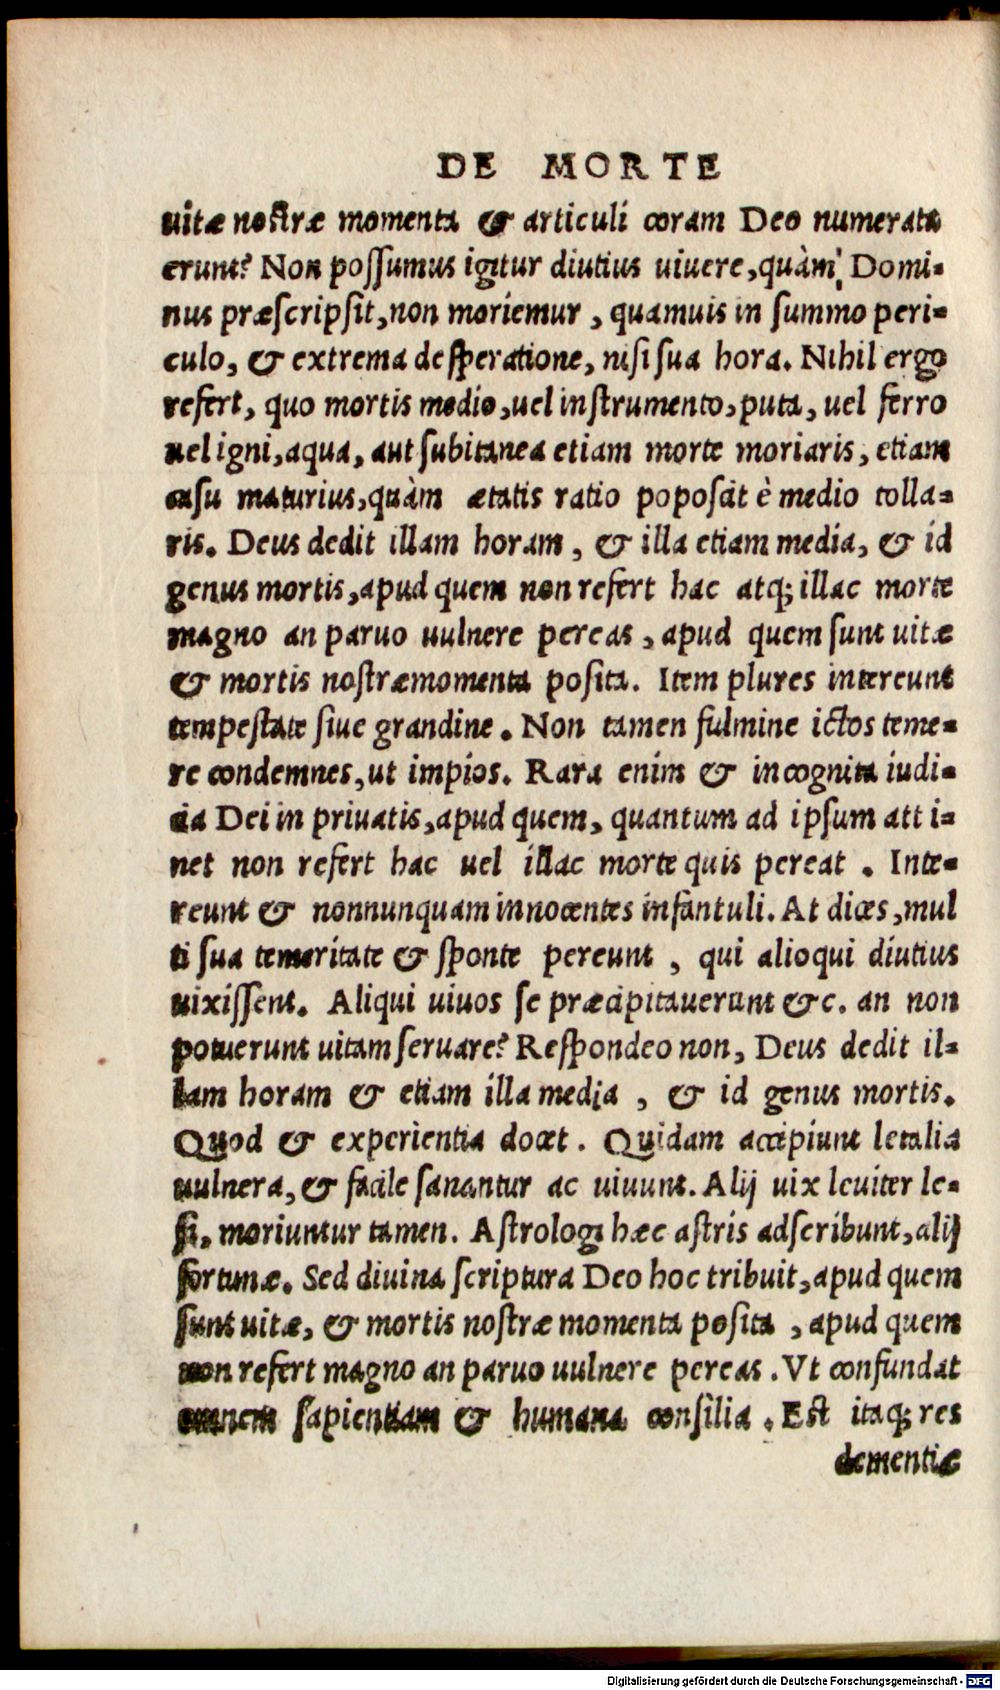 DE MORTE
uitæ nostræ momenta & articuli coram Deo numerata
erunt? Non possumus igitur diutius uiuere, quàm Domi-
nus præscripsit, non moriemur, quamuis in summo peri-
culo, & extrema desperatione, nisi sua hora. Nihil ergo
refert, quo mortis medio, uel instrumento, puta, uel ferro
uel igni, aqua, aut subitanea etiam morte moriaris, etiam
casu maturius, quàm ætatis ratio poposcit è medio tolla-
ris. Deus dedit illam horam, & illa etiam media, & id
genus mortis, apud quem non refert hac atq; illac morte
magno an paruo uulnere pereas, apud quem sunt uitæ
& mortis nostræ momenta posita. Item plures intereunt
tempestate siue grandine. Non tamen fulmine ictos teme-
re condemnes, ut impios. Rara enim & incognita iudi-
cia Dei in priuatis, apud quem, quantum ad ipsum atti-
net non refert hac uel illac morte quis pereat. Inte-
reunt & nonnunquam innocentes infantuli. At dices, mul
ti sua temeritate & sponte pereunt, qui alioqui diutius
uixissent. Aliqui uiuos se præcipitauerunt &c. an non
potuerunt uitam seruare? Respondeo non, Deus dedit il-
lam horam & etiam illa media, & id genus mortis.
Quod & experientia docet. Quidam accipiunt letalia
uulnera, & facile sanantur ac uiuunt. Alij uix leuiter le-
si, moriuntur tamen. Astrologi hæc astris adscribunt, alij
fortunæ. Sed diuina scriptura Deo hoc tribuit, apud quem
sunt uitæ, & mortis nostræ momenta posita, apud quem
non refert magno an paruo uulnere pereas. Vt confundat
omnem sapientiam & humana consilia. Est itaq; res
dementiæ
Digitalisierung gefördert durch die Deutsche Forschungsgemeinschaft - DFG